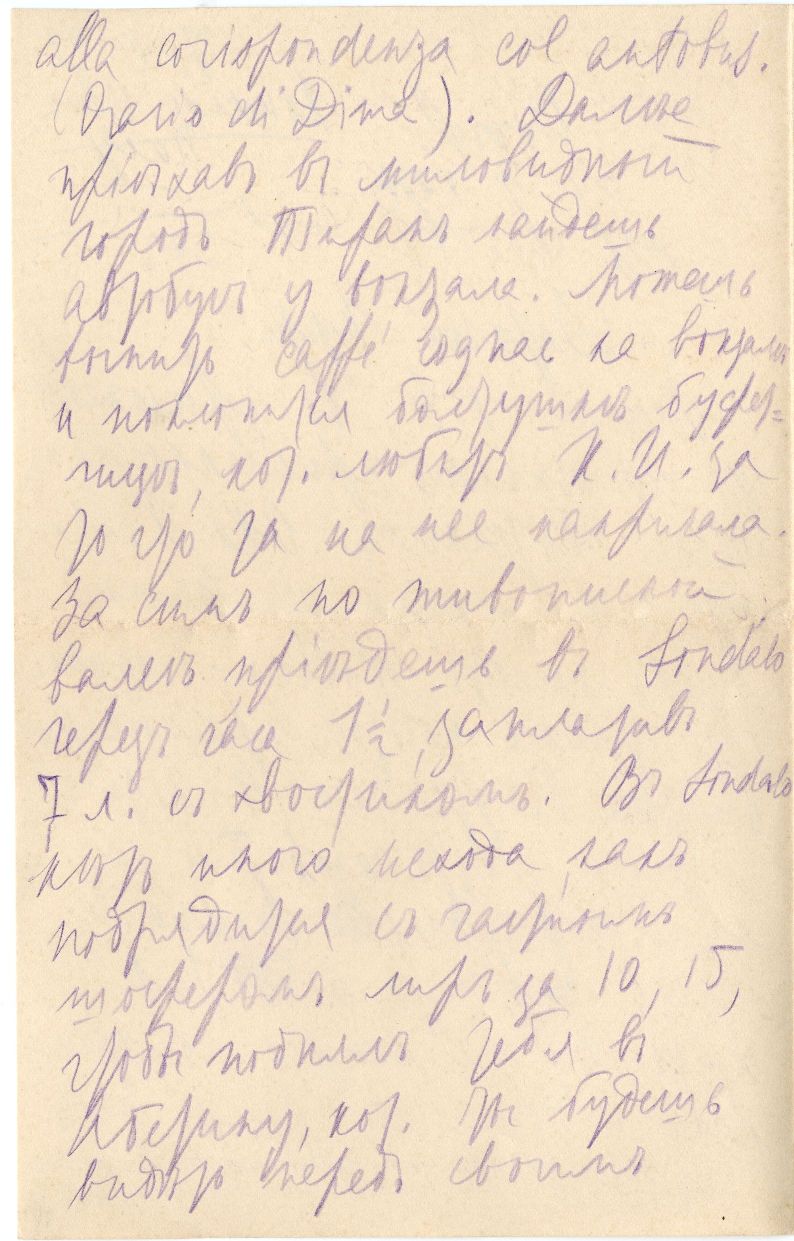 alla corispondenza col autobus.
(Orario di Dima). Дальше
пріѣхавъ въ миловидный
городъ Тиранъ найдешь
автобусъ у вокзала. Можешь
выпить caffé тодчас на вокзалѣ
и поклониться буфет=
чицѣ, кот. любитъ К. И. за
то что та на нее накричала.
За симъ по живописной
валлѣ пріѣдешь въ Sondalo
через часа 1½, заплативъ
7 л. съ хвостикомъ. Въ Sondalo
нѣтъ иного исхода, какъ
подрядиться съ частнымъ
шоферомъ лиръ за 10, 15,
чтобы поднялъ тебя въ
Абетину, кот. ты будешь
видѣть передъ своимъ